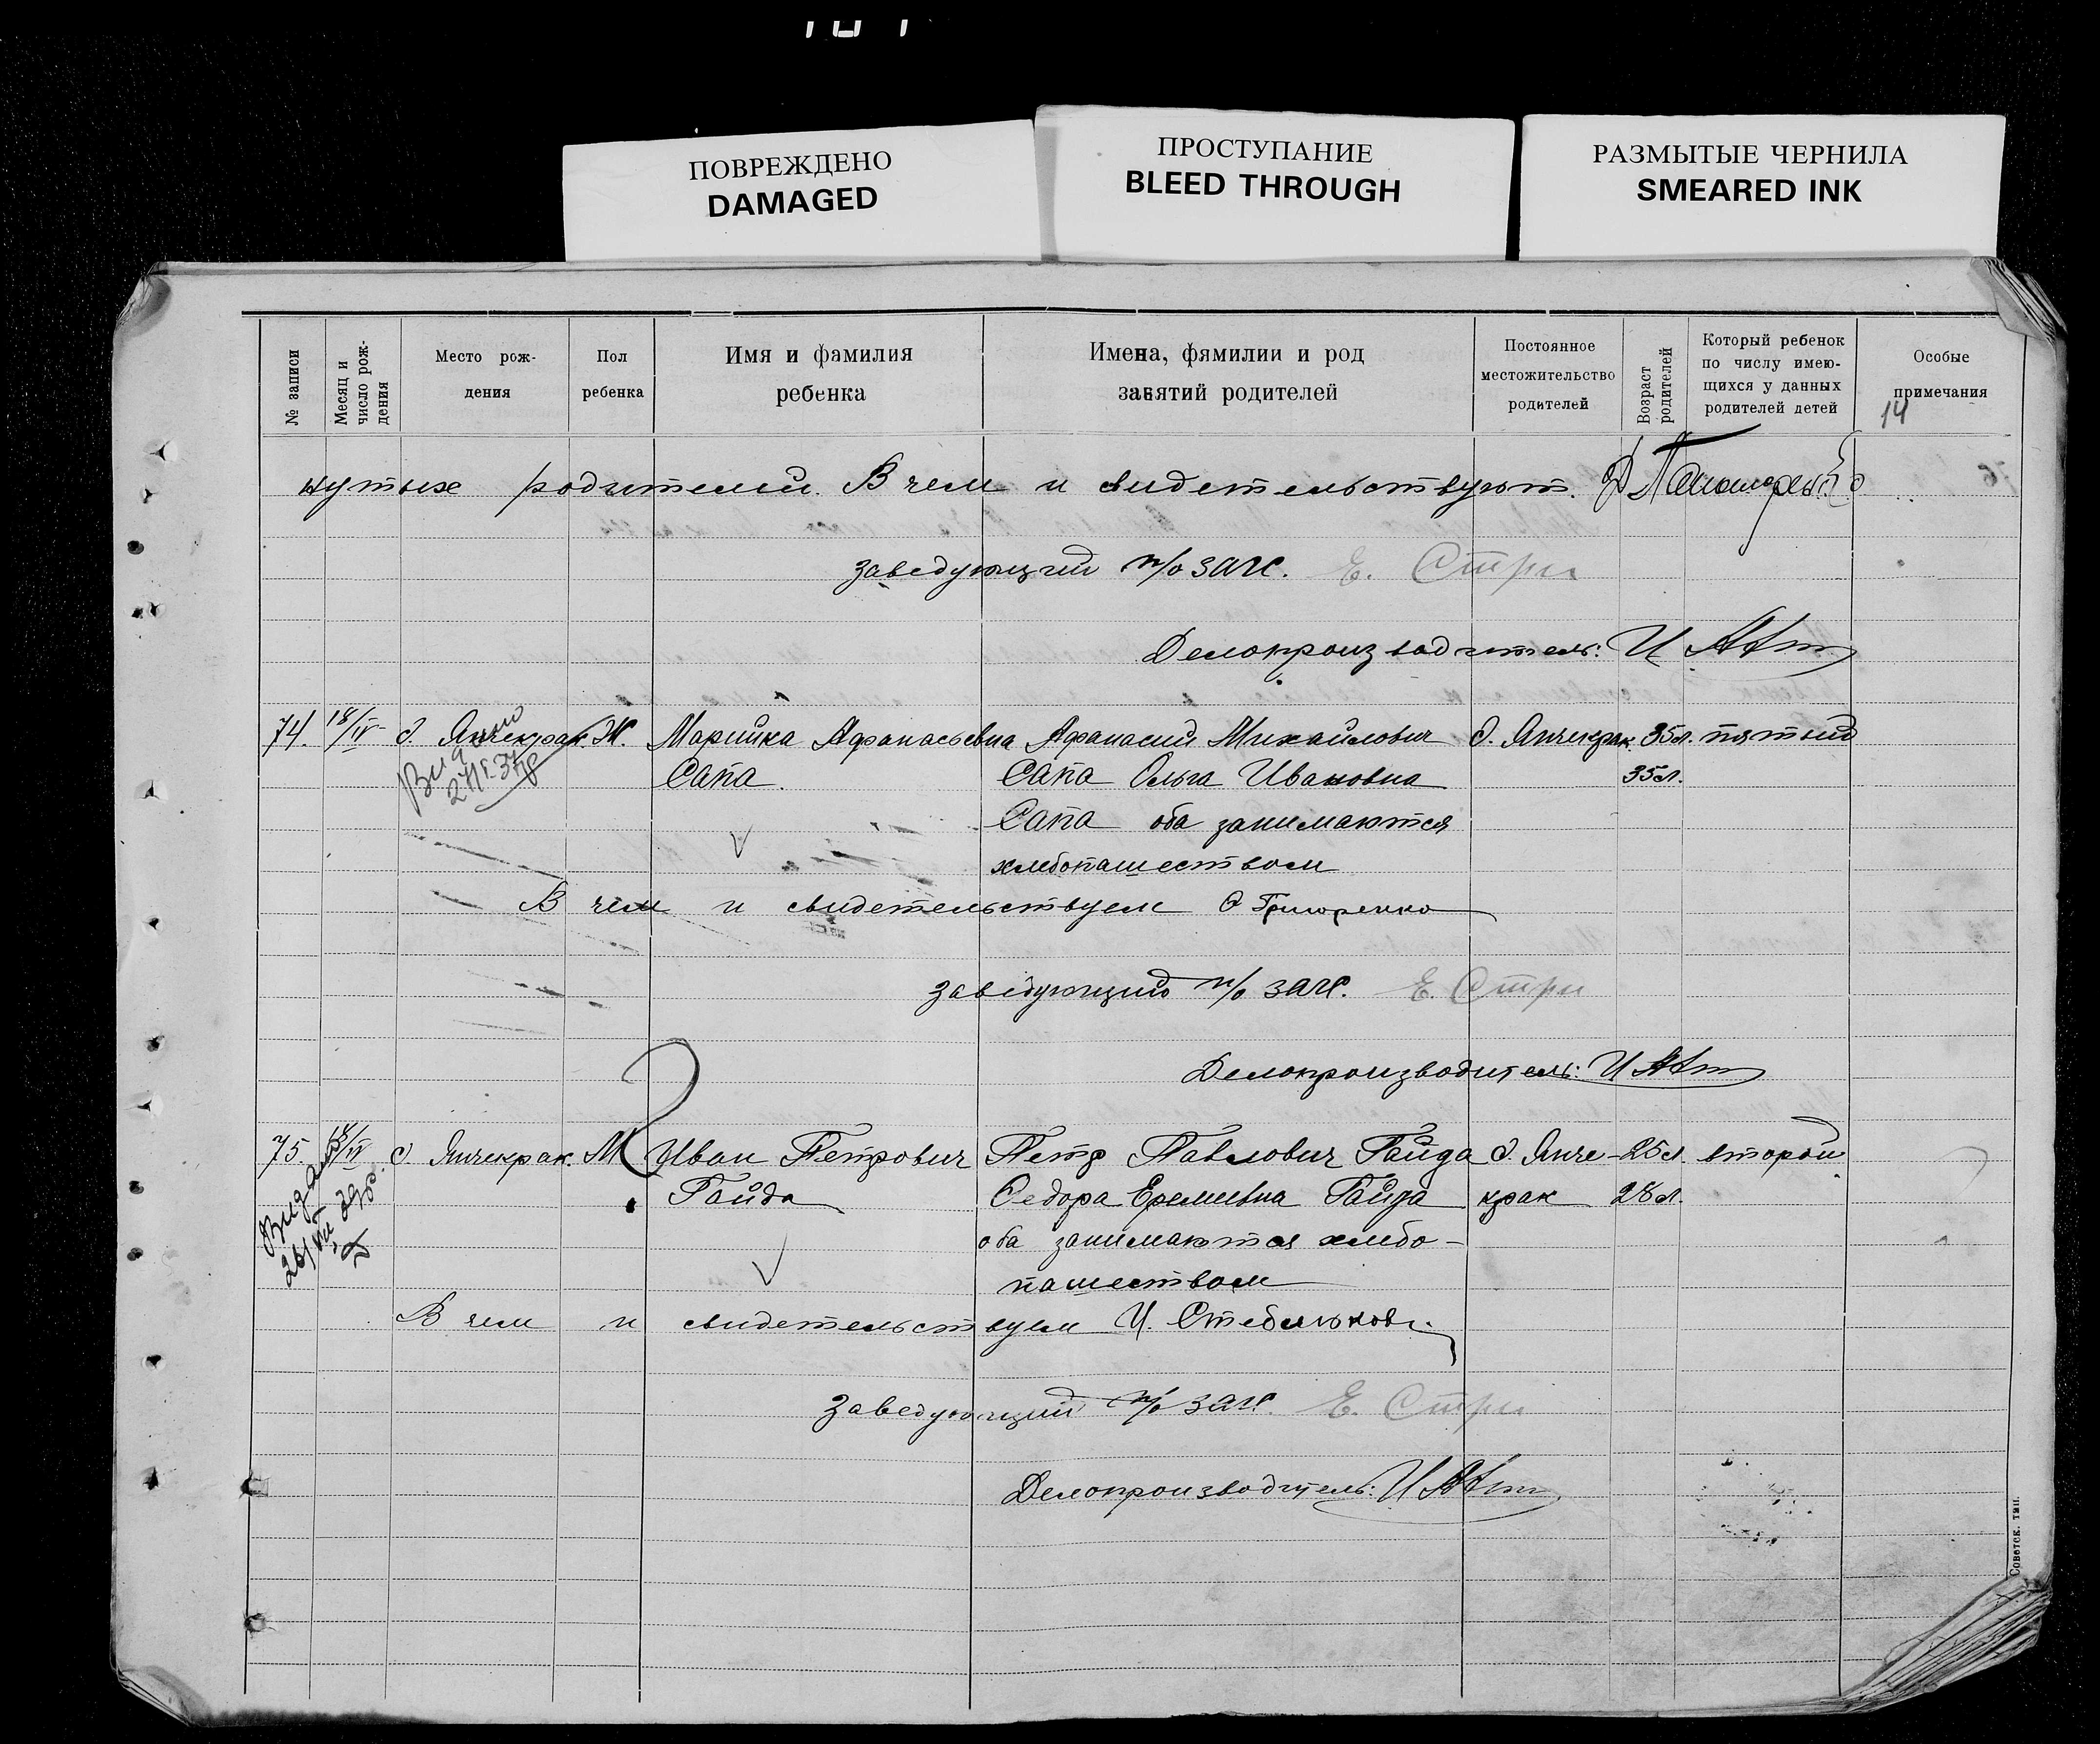 ПОВРЕЖДЕНО
DAMAGED
ПРОСТУПАНИЕ
BLEED THROUGH
РАЗМЫТЫЕ ЧЕРНИЛА
SMEARED INK
№ записи
Месяц и число рождения
Место рож-
дения
Пол
ребенка
Имя и фамилия
ребенка
Имена, фямилии и род
занятий родителей
Постоянное
местожительство
родителей
Возраст родителей
Который ребенок
по числу имею-
щихся у данных
родителей детей
Особые
примечания
14
нутых родителей. В чем и свидетельствуют.
заведующий п/о загс. Е. Стри
Делопроизводитель:
74. 18/IV д. Янчекрак Ж. Марийка Афанасьевна Афанасий Михайлович д. Янчекрак. 35 л. пятый
Сапа. Сапа Ольга Ивановна 35 л.
Сапа оба занимаются
хлебопашеством
В чем и свидетельствуем О Григоренко
заведующий п/о загс. Е. Стри
Делопроизводитель:
75. д Янчекрак. М Иван Петрович Петр Павлович Гайда д. Янче- 25 л. второй
Гайда Федора Еремеевна Гайда крак 28 л.
оба занимаются хлебо-
пашеством
В чем и свидетельствуем И. Стебльков.
Заведующий п/о загс. Е. Стри
Делопроизводитель:
Советск. тип.